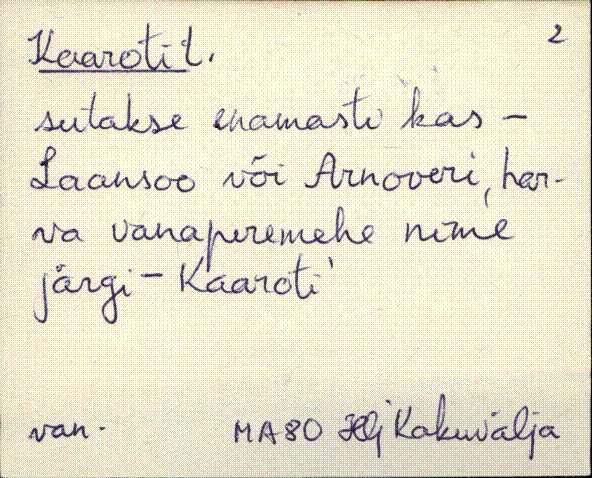 2
Kaaroti t.
sutakse enamasti kas –
Laansoo või Arnoveri, har-
va vanaperemehe nime
järgi – Kaaroti
van. MA80 Helj Kokuvälja